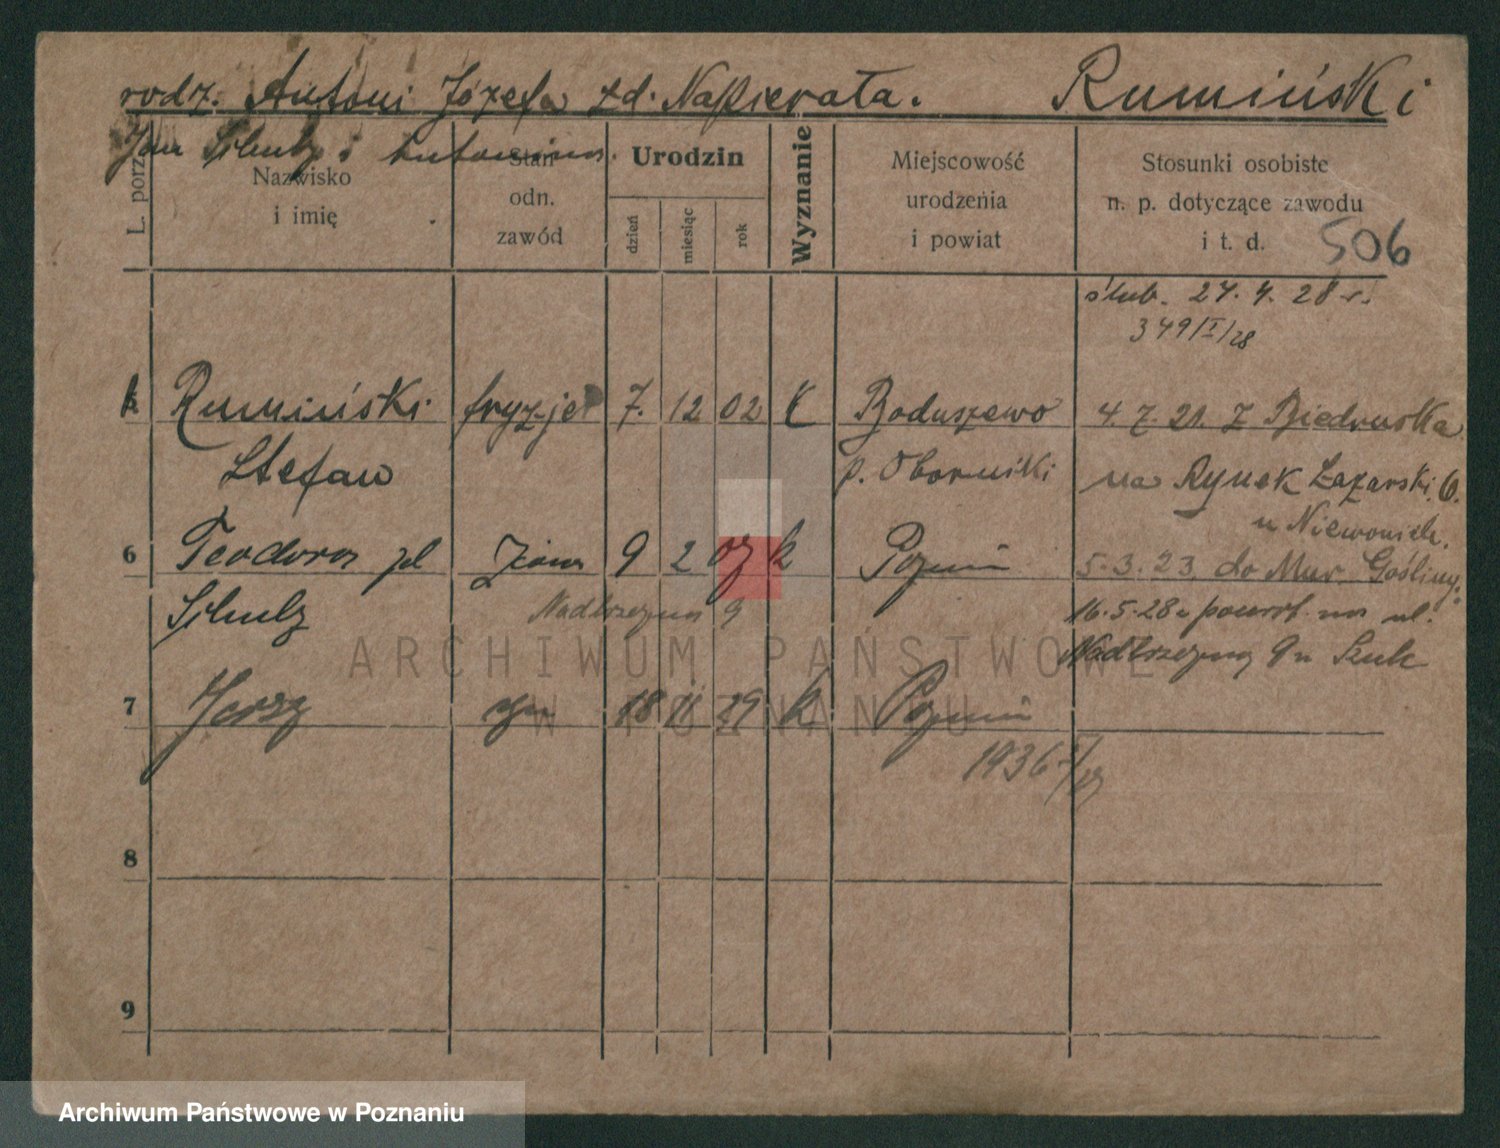 rodz. Antoni Józefa zd. Napierała. Rumiński
Jan Schulz i Antonina.
L. porz.
Nazwisko
i imię
Stan
odn.
zawód
Urodzin
dzień
miesiąc
rok
Wyznanie
Miejscowość
urodzenia
i powiat
Stosunki osobiste
n. p. dotyczące zawodu
i t. d. 506
ślub. 24. 4. 28 r.
349/I/28
Rumiński fryzjer 7. 12 02 k Boduszewo 4. 7. 21. z Biedruska
Stefan p. Oborniki na Rynek Łazarski 6.
u Niewoniek.
6 Teodora zd żona 9 2 07 k Poznań 5.3.23. do Mur. Gośliny.
Schulz Nadbrzeżna 9 16.5.28 powrót na ul.
Nadbrzeżną 9 u
7 Jerzy syn 18 11 29 k Poznań
1936
8
9
ARCHIWUM PAŃSTWOWE
W POZNANIU
Archiwum Państwowe w Poznaniu